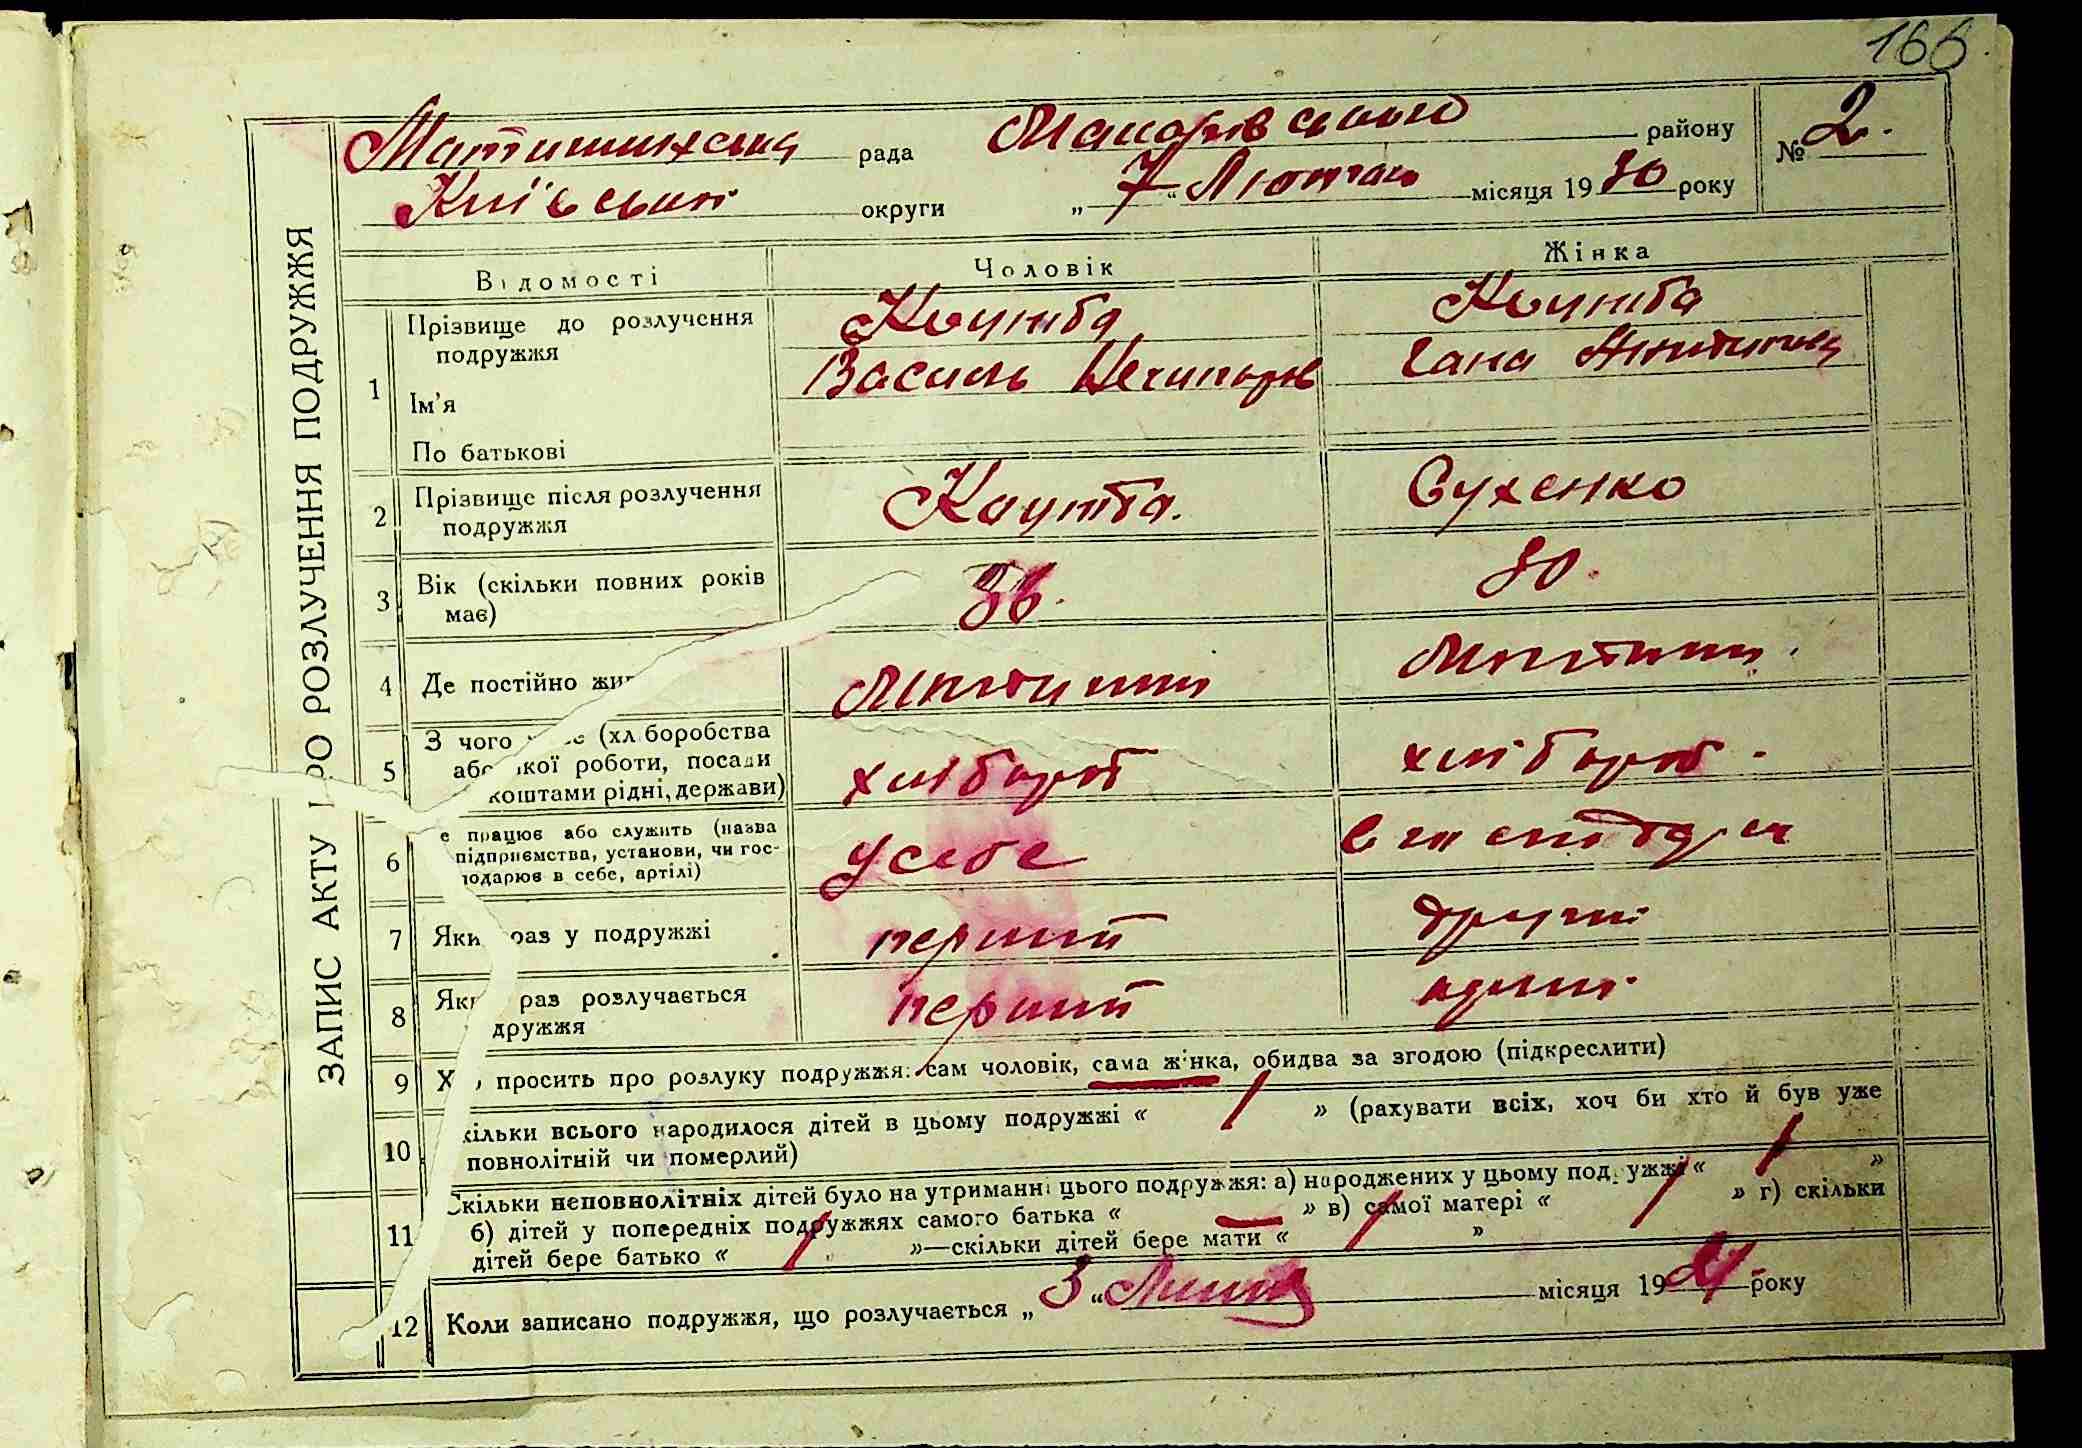 166
ЗАПИС АКТУ ПРО РОЗЛУЧЕННЯ ПОДРУЖЖЯ
рада Макарівського району № 2.
Київської округи „7“ Лютого місяця 1930 року
Відомості Чоловік Жінка
1 Прізвище до розлучення Коцюба Коцюба
подружжя
Василь Нечипорів Гана
Ім’я
По батькові
2 Прізвище після розлучення Коцюба. Сухенко
подружжя
3 Вік (скільки повних років 36. 30.
має)
4 Де постійно жив Мотижин Мотижин.
5 З чого (хліборобства хлібороб хлібороб.
або якої роботи, посади
коштами рідні, держави)
6 працює або служить (назва усебе
підприємства, установи, чи гос-
подарює в себе, артілі)
7 Який раз у подружжі перший другий
8 Який раз розлучається перший
дружжя
9 Хто просить про розлуку подружжя: сам чоловік, сама жінка, обидва за згодою (підкреслити)
10 Скільки всього народилося дітей в цьому подружжі « 1 » (рахувати всіх, хоч би хто й був уже
повнолітній чи померлий)
11 Скільки неповнолітніх дітей було на утриманні цього подружжя: а) народжених у цьому подружжі « 1 »
б) дітей у попередніх подружжях самого батька « — » в) самої матері « 1 » г) скільки
дітей бере батько « 1 »—скільки дітей бере мати « 1 »
12 Коли записано подружжя, що розлучається „3“ місяця 192 року